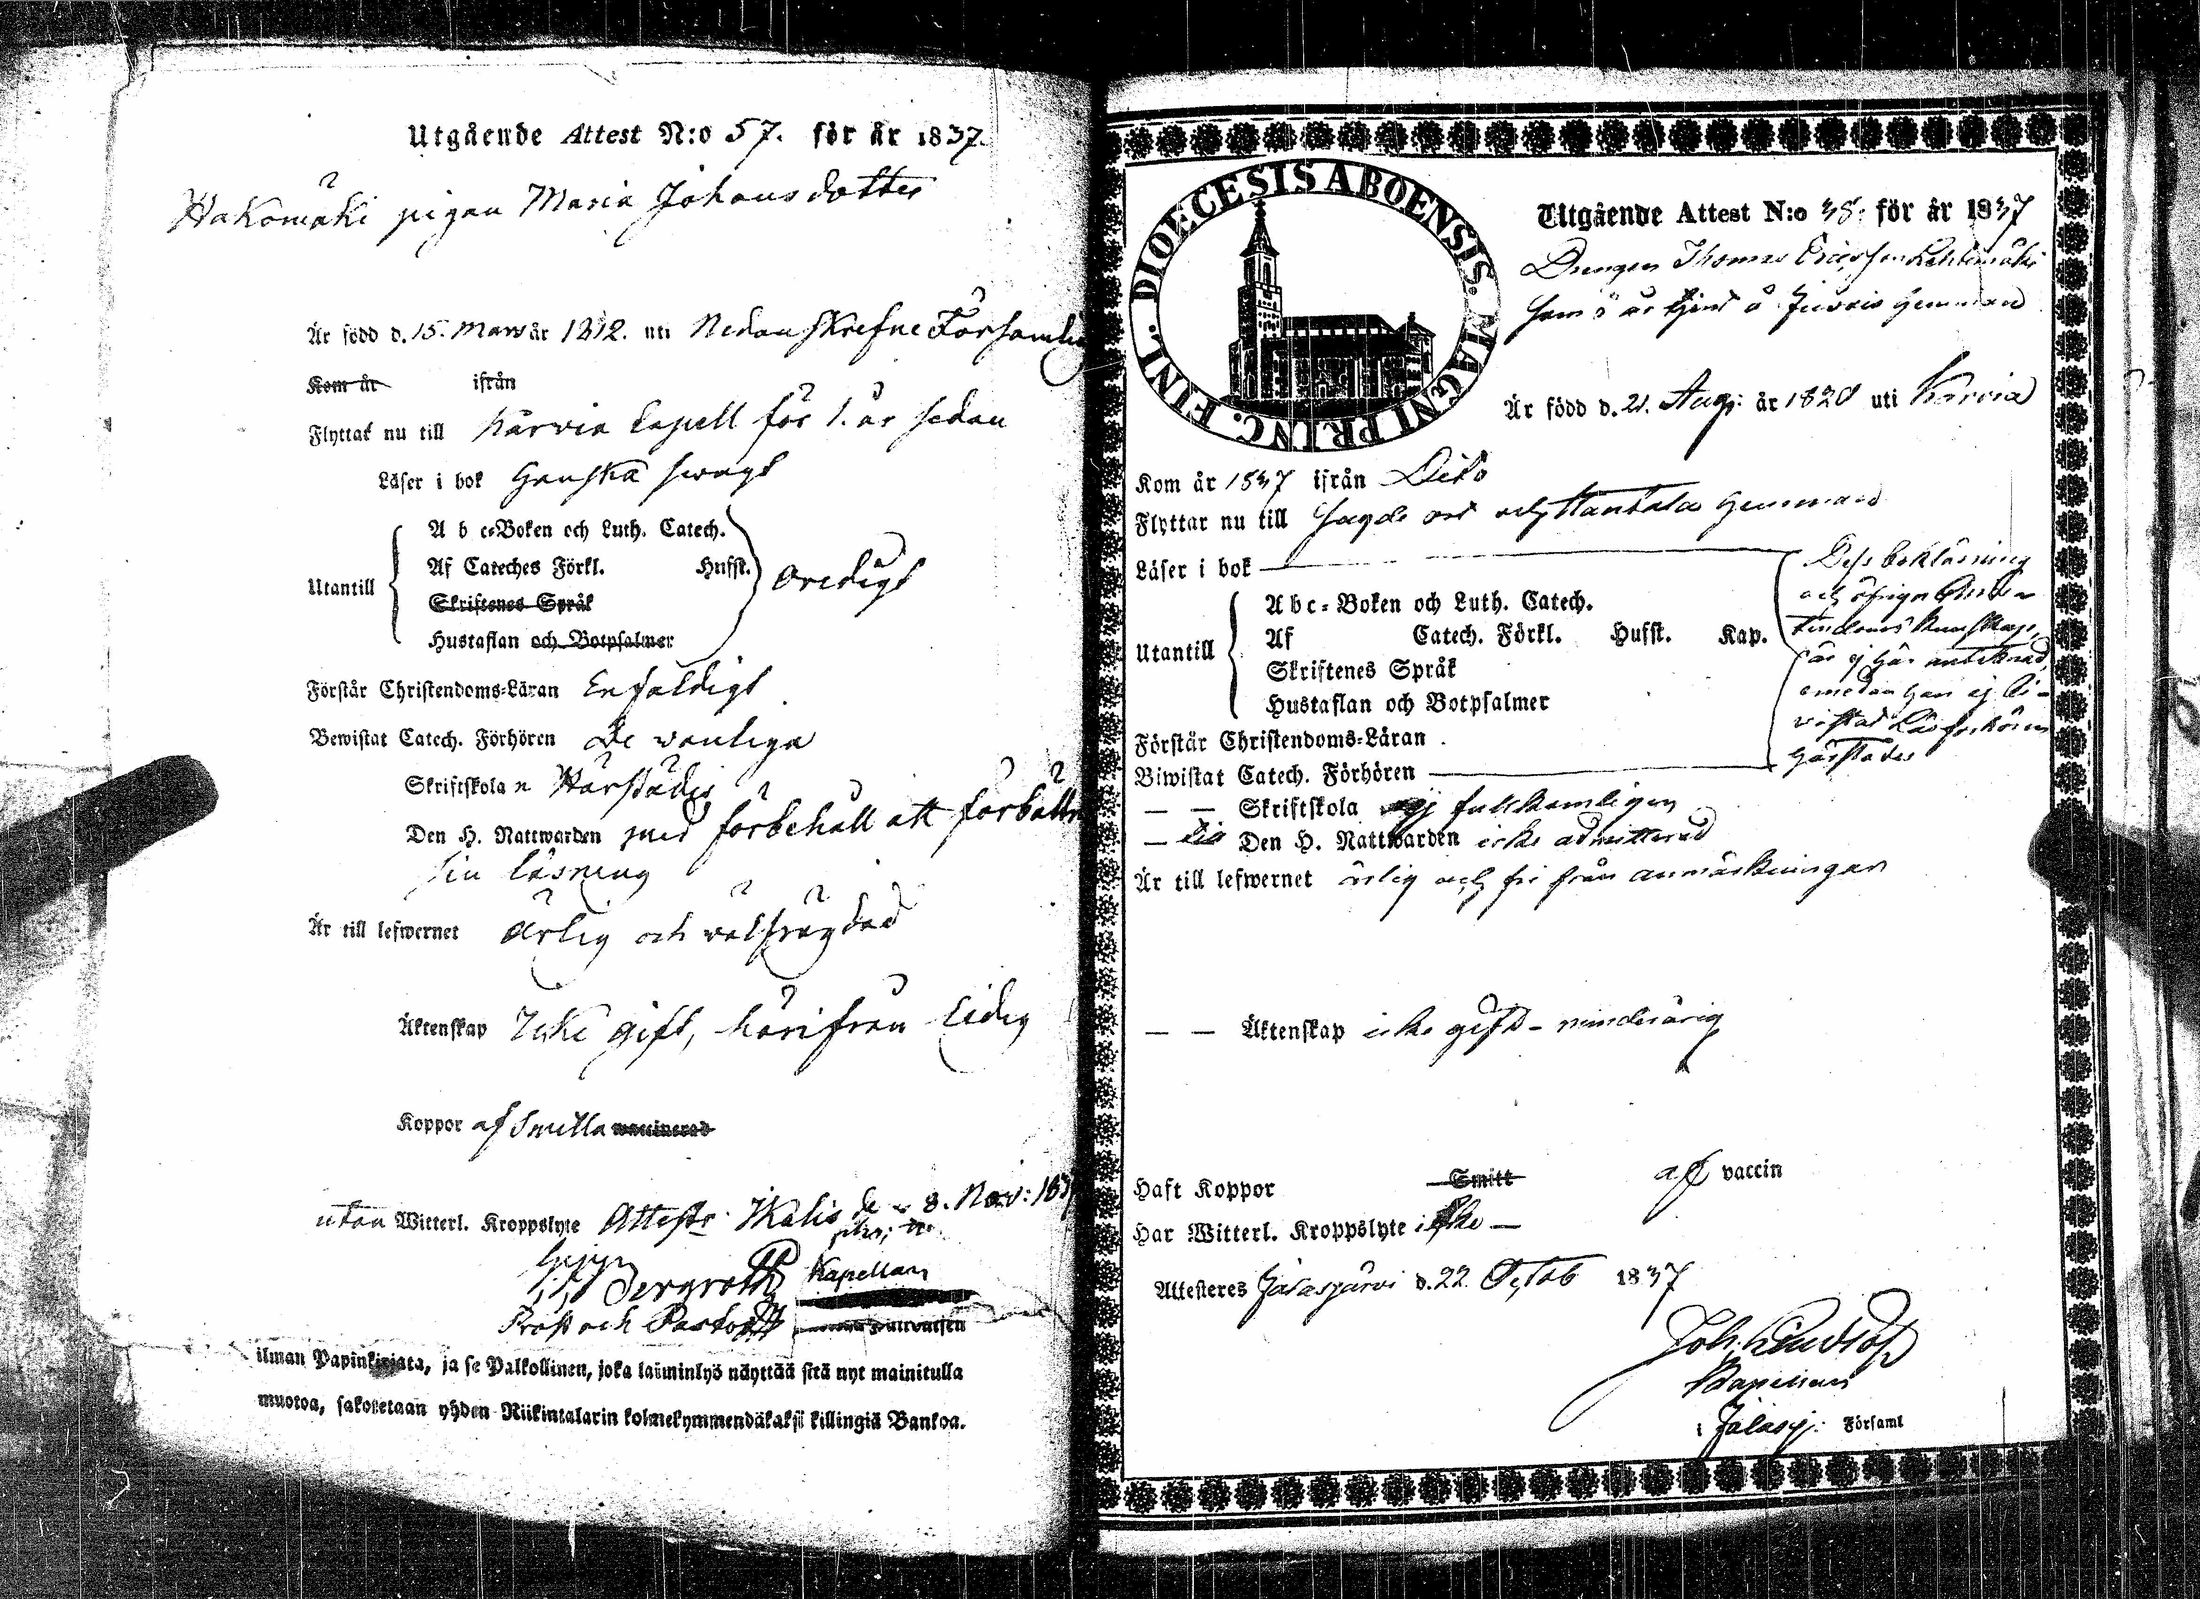 Utgående Attest N:o 57. för år 1837.
Hakomäki pigan Maria Johansdotter
Är född d. 15. Mars år 1812. uti Nedanskrefne Församling
Kom år ifrån
Flyttat nu till Karvia Capell för 1. år sedan
Läser i bok Ganska swagt
A b c-Boken och Luth. Catech.
Af Cateches Förkl. Husst.
Utantill
Skriftenes Språk
Hustaflan och Botpsalmer
Oredigt
Förstår Christendoms-Läran Enfaldigt
Bewistat Catech. Förhören De wanliga
Skriftskola n Härstädes
Den H. Nattwarden med förbehåll att förbättra
sin läsning
Är till lefwernet Ärlig och välfrägdad
Äktenskap Icke gift, härifrån Ledig
Koppor af Smitta waccinerad
utan Witterl. Kroppslyte Attest. Ikalis de 8. Nov: 1837
Bergroth Kapellan
Prost och Pastor
ilman Papinkirjata, ja se Palkollinen, joka laiminlyö näyttää sitä nyt mainitulla
muotoa, sakotetaan yhden Riikintalarin kolmekymmendäkaksi killingiä Bankoa.
DIOECESIS ABOENSIS. MAGNI PRINC. FINL.
Utgående Attest N:o 38: för år 1837
Drengen Thomas Ericsson Lehtimäki
som är tjent å Jusois hemman
Är född d. 21. Aug: år 1820 uti Karvia
Kom år 1837 ifrån Dito
Flyttar nu till sagde ort och hemman
Läser i bok
A b c-Boken och Luth. Catech.
Af Catech. Förkl. Husst. Kap.
Utantill
Skriftenes Språk
Hustaflan och Botpsalmer
Dess bokläsning
och öfriga Christen
domskunskap,
är ej här antecknad,
emedan han ej bi-
vistat Läsförhören
härstädes
Förstår Christendoms-Läran
Biwistat Catech. Förhören
— — Skriftskola ej fullkomligen
— Den H. Nattwarden icke admitterad
Är till lefwernet ärlig och fri från anmärkningar
— — Äktenskap icke gift - minderårig
Haft Koppor Smitt af vaccin
Har Witterl. Kroppslyte icke —
Attesteres Jalasjärvi d. 22. Octob 1837
Joh:
Kapellan
i Jalasj: Församl